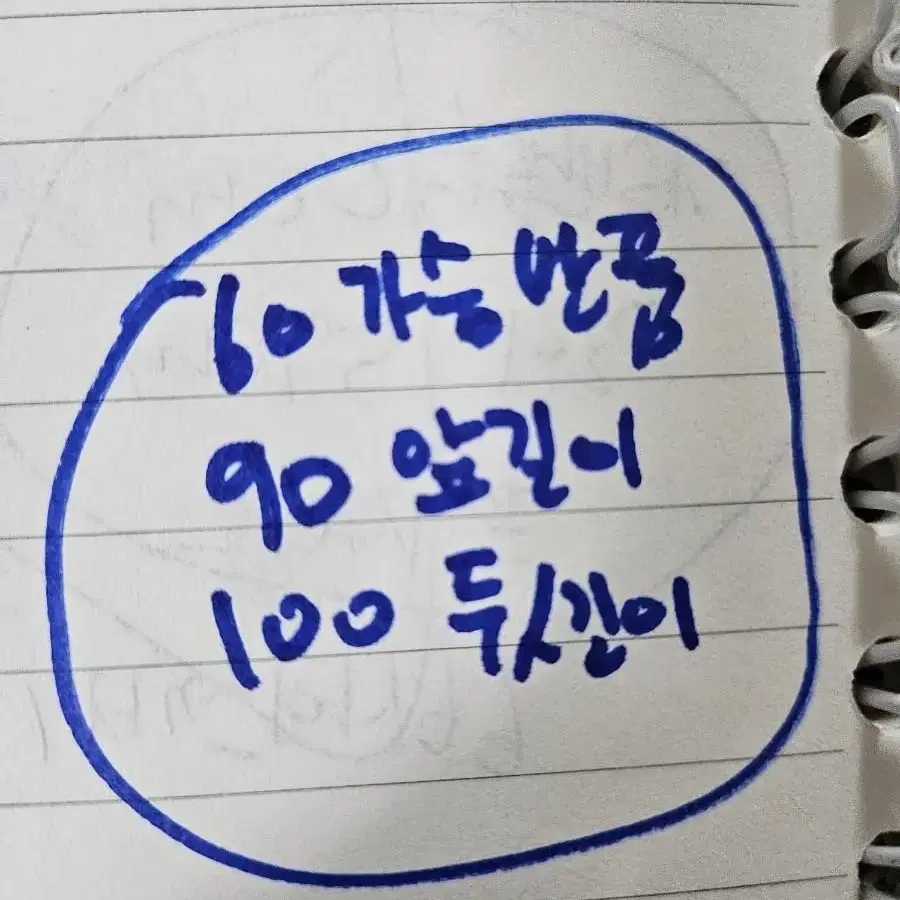 60 가슴 반품
90 앞길이
100 뒷길이